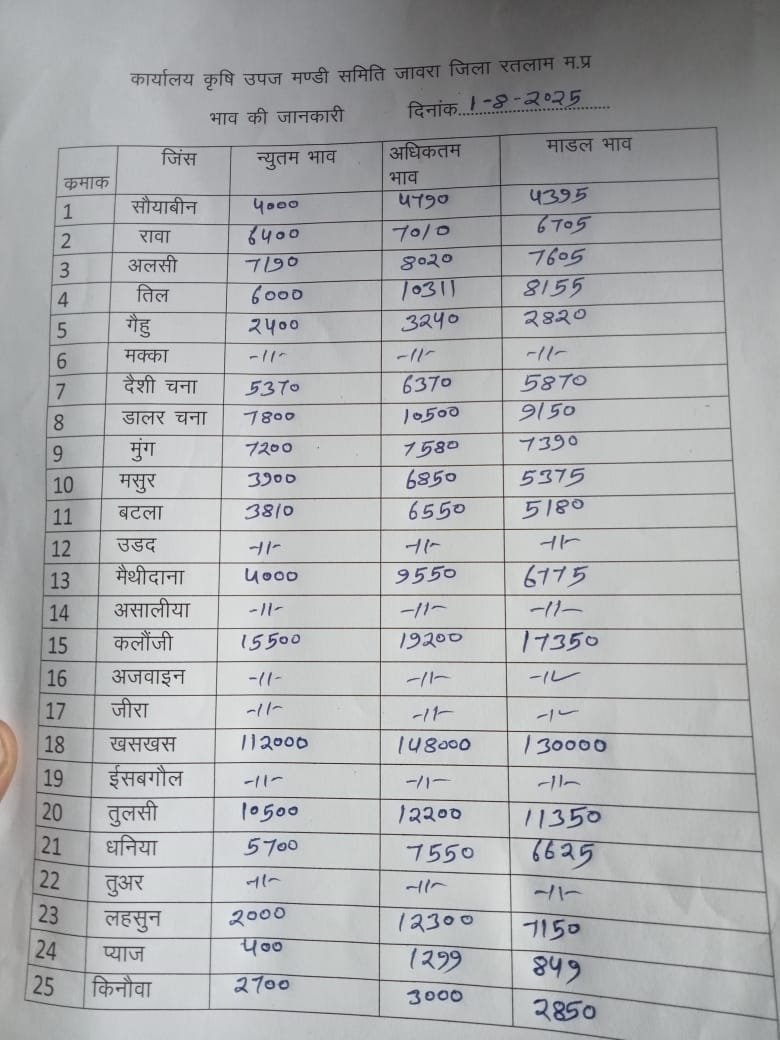 कार्यालय कृषि उपज मण्डी समिति जावरा जिला रतलाम म.प्र
भाव की जानकारी दिनांक 1-8-2025
कमाक जिंस न्युतम भाव अधिकतम भाव माडल भाव
1 सौयाबीन 4000 4790 4395
2 रावा 6400 7010 6705
3 अलसी 7190 8020 7605
4 तिल 6000 10311 8155
5 गैहु 2400 3240 2820
6 मक्का -11- -11- -11-
7 दैशी चना 5370 6370 5870
8 डालर चना 7800 10500 9150
9 मुंग 7200 7580 7390
10 मसुर 3900 6850 5375
11 बटला 3810 6550 5180
12 उडद -11- -11- -11-
13 मैथीदाना 4000 9550 6775
14 असालीया -11- -11- -11-
15 कलौंजी 15500 19200 17350
16 अजवाइन -11- -11- -11-
17 जीरा -11- -11- -11-
18 खसखस 112000 148000 130000
19 ईसबगौल -11- -11- -11-
20 तुलसी 10500 12200 11350
21 धनिया 5700 7550 6625
22 तुअर -11- -11- -11-
23 लहसुन 2000 12300 7150
24 प्याज 400 1299 849
25 किनौवा 2700 3000 2850